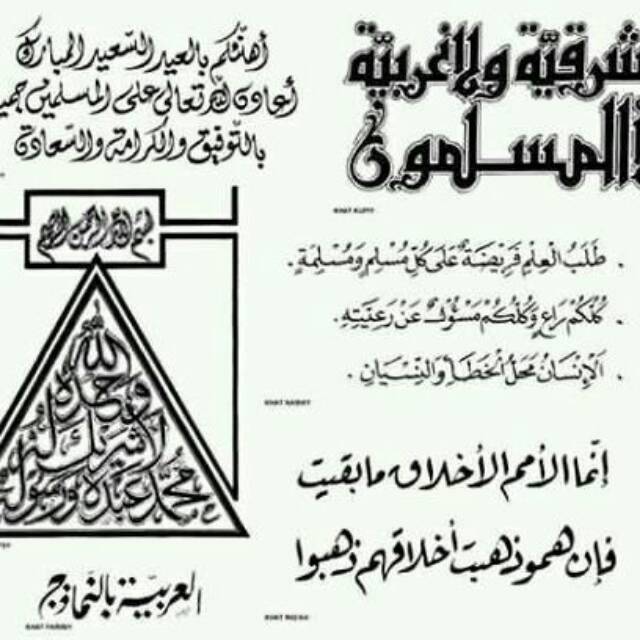 أهنئكم بالعيد السعيد المبارك
أعاده الله تعالى على المسلمين
بالتوفيق والكرامة والسعادة
شرقية ولا غربية
المسلمون
KHAT KUFFI
بسم الله الرحمن الرحيم
الله
وحده
لا شريك له
محمد عبده ورسوله
طَلَبُ الْعِلْمِ فَرِيضَةٌ عَلَى كُلِّ مُسْلِمٍ وَمُسْلِمَةٍ.
كُلُّكُمْ رَاعٍ وَكُلُّكُمْ مَسْئُولٌ عَنْ رَعِيَّتِهِ.
اَلْإِنْسَانُ مَحَلُّ الْخَطَأِ وَالنِّسْيَانِ.
KHAT NASKHY
إنّما الأمم الأخلاق ما بقيت
فإن همو ذهبت أخلاقهم ذهبوا
KHAT RIQ'AH
العربيّة بالنّماذج
KHAT FARISIY